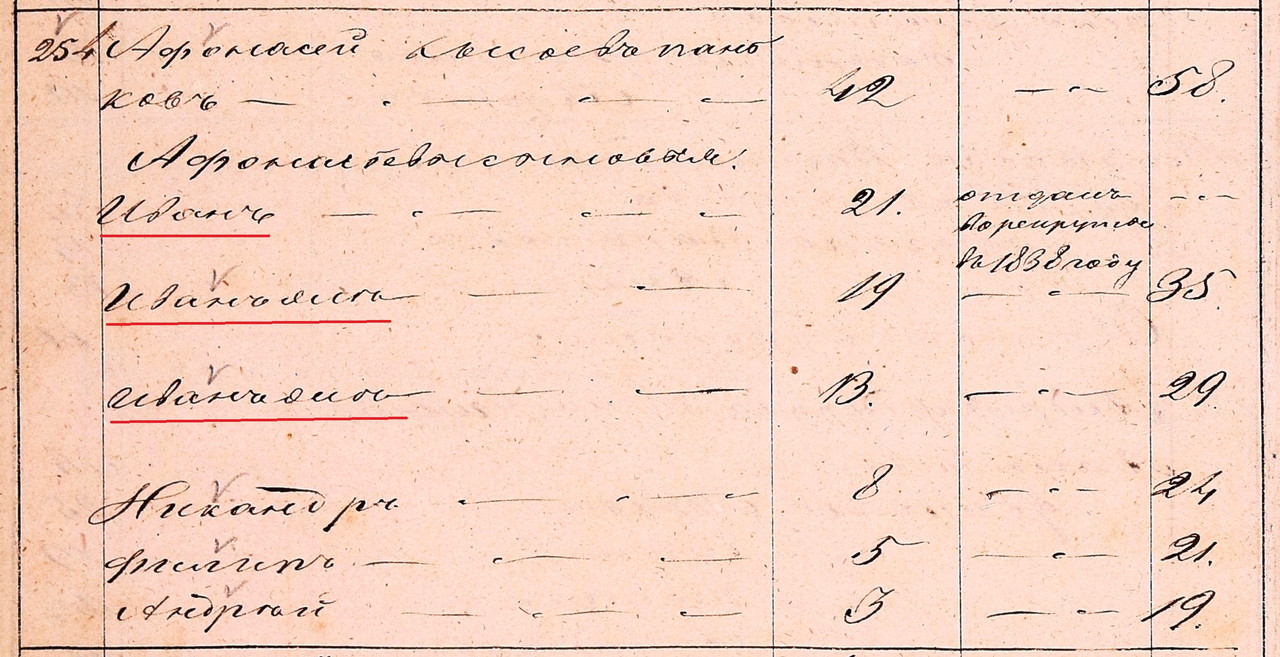 254 Афонасей Сысоевъ пано
ковъ — 42 — 58.
Афонасьевы сыновья:
Иванъ — 21. отданъ — —
в рекруты
въ 1838 году
Иванъ же — 19 — 35.
Иванъ же — 13. — 29
Никандръ — 8 — 24
Филипъ — 5 — 21.
Андрей — 3 — 19.